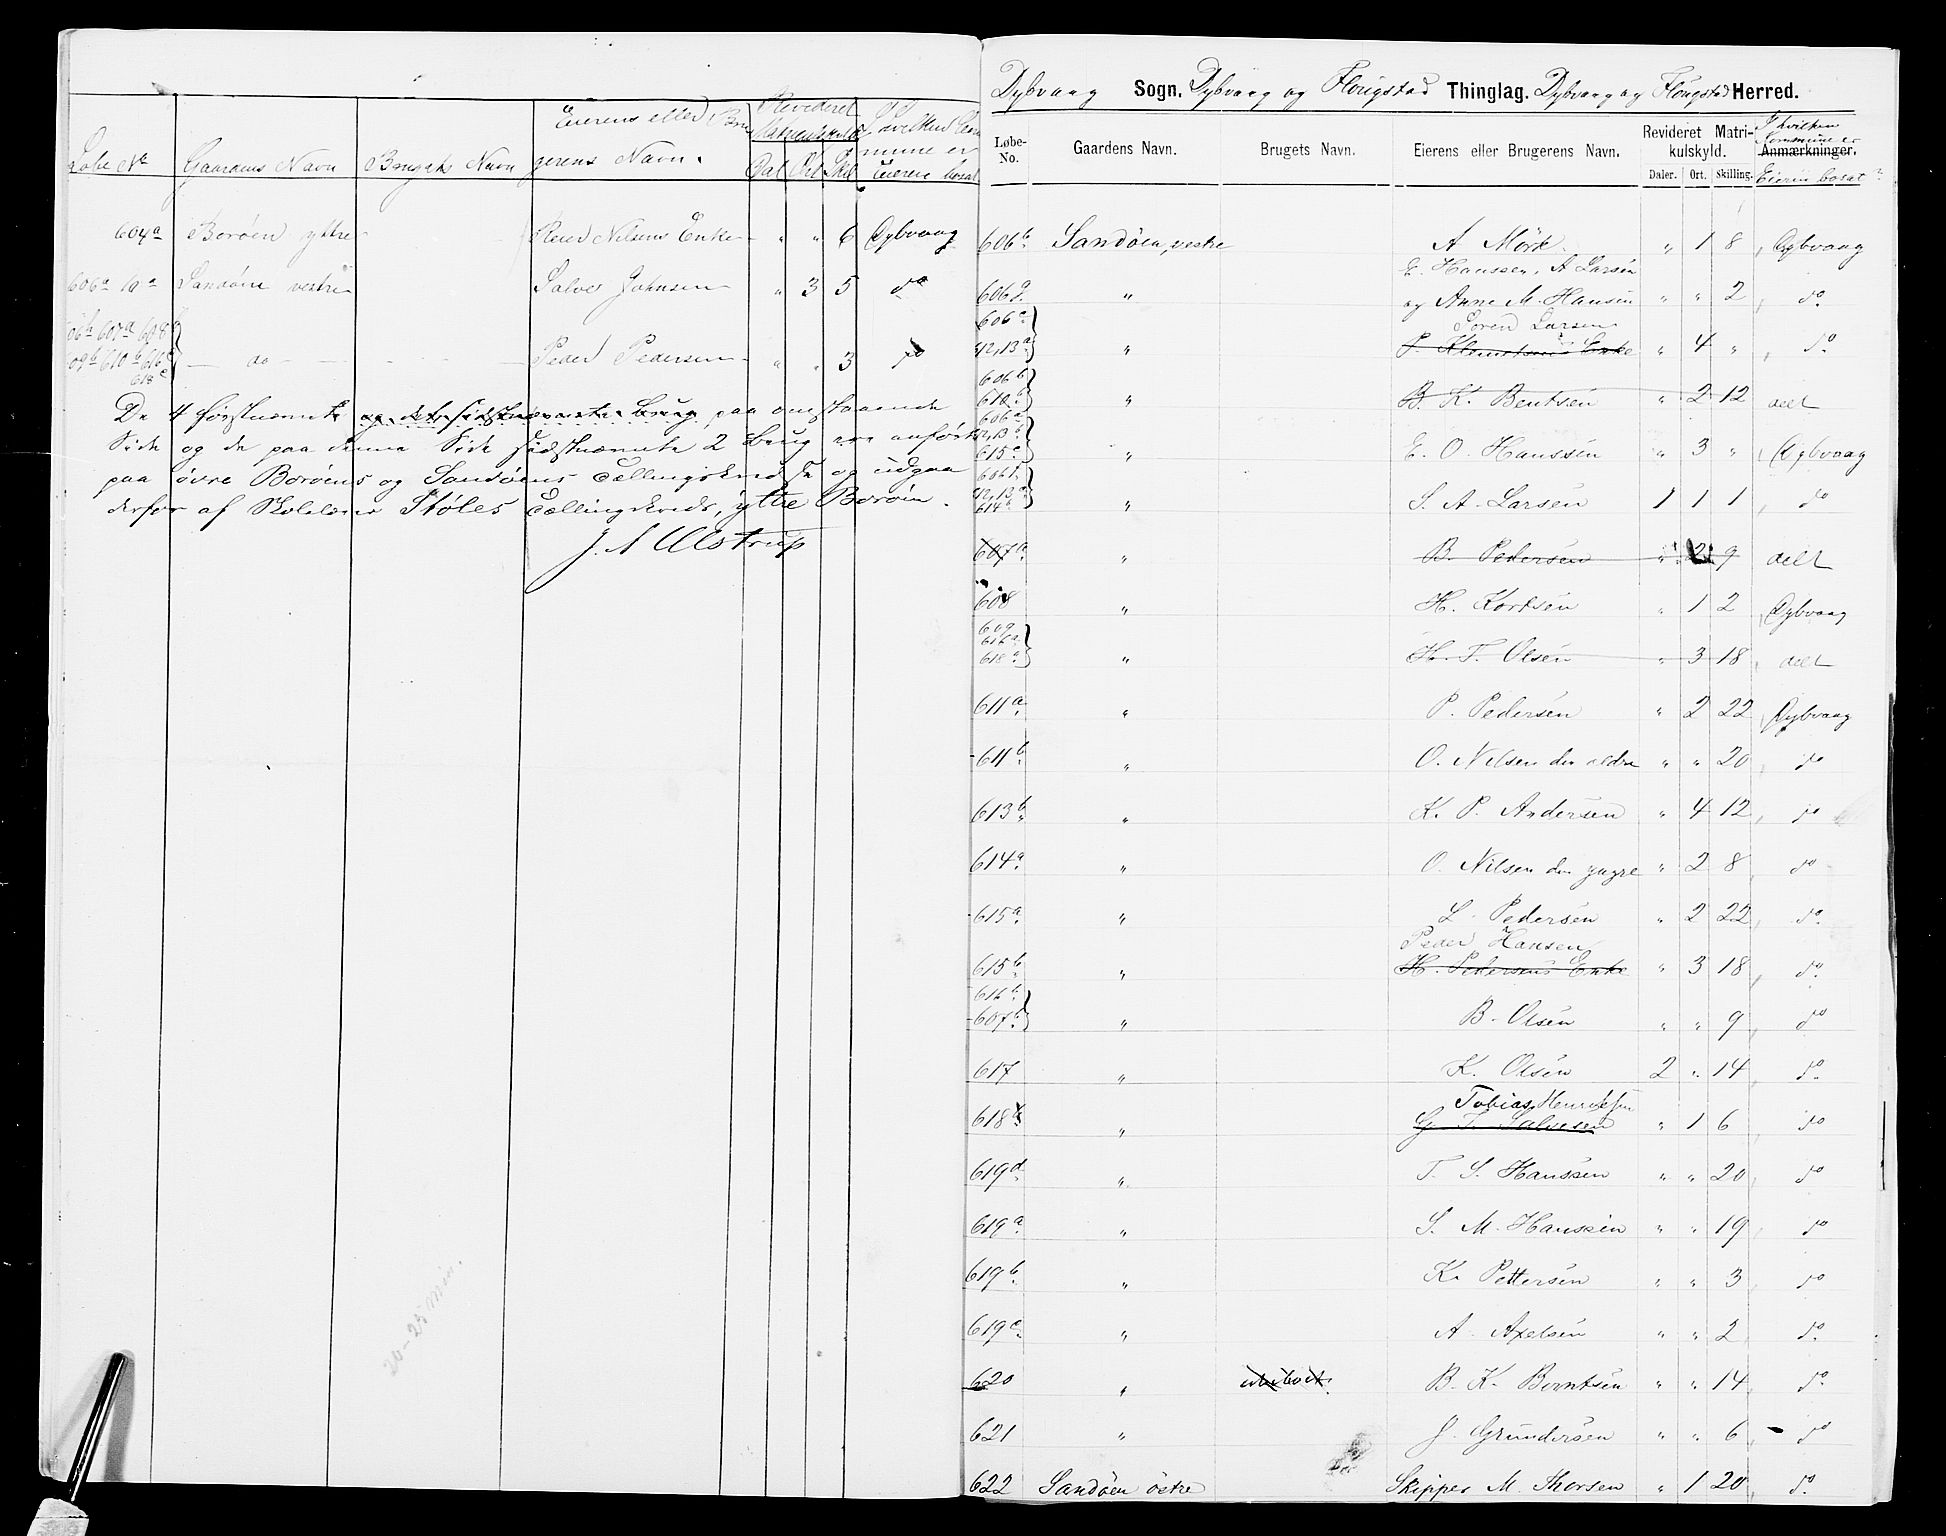 Løbe No Gaardens Navn Brugets Navn Eierens eller Brugerens Navn. Revideret Matrikulskyld Dal Ort Skil I hvilken Commune er Eieren bosat
604a Borøen yttre Reier Nilsens Enke " " 6 Dybvaag
606a Sandøen vestre Salve Johnsen " 3 5 do
607a 608
610b 616c 618c — do — Peder Pedersen " " 3 do
De 4 førstnævnte og det sidstnævnte Brug paa omstaaende
Side og de paa denne Side sidstnævnte 2 Brug ere anført
paa øvre Borøens og Sandøens Tællingskreds og udgaa
derfor af Skolelærer Støles Tællingskreds, yttre Borøen.
J. A Ulstrup
20-25 min.
Dybvaag Sogn. Dybvaag og Flougstad Thinglag. Dybvaag og Flougstad Herred.
Løbe-No. Gaardens Navn. Brugets Navn. Eierens eller Brugerens Navn. Revideret Matrikulskyld. Daler. Ort. Skilling. Anmærkninger. I hvilken Commune er Eieren bosat?
606b Sandøen, vestre A Mörk. " 1 8 Dybvaag
E. Hanssen, A Larsen
606g " og Anne M. Hansen " " 2 do
606e Soren Larsen
12,13a " P. Klemetsens Enke " 4 " do
606b
612a " B. K. Bentsen " 2 12 delt
606a
12,13b
615c " E. O. Hanssen " 3 " Dybvaag
606f
12,13c
614b " S. A. Larsen 1 1 1 do
607a " B. Pedersen " 2 9 delt
608 " H. Kortsen " 1 2 Dybvaag
609
616a
618a " H. T. Olsen " 3 18 delt
611a " P. Pedersen " 2 22 Dybvaag
611b " O. Nilsen den aldre " " 20 do
613b " K. P. Andersen " 4 12 do
614a " O. Nilsen den yngre " 2 8 do
615a " L. Pedersen " 2 22 do
Peder Hansen
615b " H. Pedersens Enke " 3 18 do
616b
607b " B. Olsen " " 9 do
617 " K. Olsen 2 " 14 do
Tobias Henriksen
618b " G. T. Salvesen " 1 6 do
619d " T. S. Hanssen " " 20 do
619a " S. M. Hanssen " " 19 do
619b " K. Pettersen " " 3 do
619c " A. Axelsen " " 2 do
620 " B. K. Berntsen " " 14 do
621 " J. Grundersen " " 6 - do
622 Sandøen östre Skipper M. Thorsen " 1 20 do